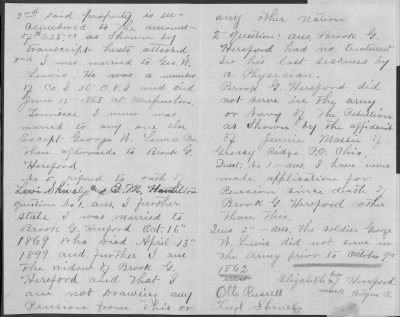 3rd said property is en-
cumbered to the amount
of $625.00 as shown by
transcript hereto attached
I was married to Geo. W.
Lewis. He was a member
of Co. I 36 O.V.I. and died
June 15" 1863 at Murfreesboro,
Tennessee I never was
married to any one else
Except George W. Lewis
then afterwards to Brook G.
Hereford,
No 5 refered to oath of
Lewis & B. M. Hamilton
question No 1. ans. I further
state I was married to
Brook G. Hereford Oct. 16"
1869 who Died April 13"
1899 and further I am
the widow of Brook G.
Hereford and that I
am not Drawing any
Pension from this or
any other nation
2" question: ans. Brook G.
Hereford had no treatment
in his last sickness by
a Physician.
Brook G. Hereford did
not serve in the army
or Navy of the Rebellion
as shown by the affidavit
of Jennie Massie of
Greasy Ridge P.O. Ohio.
Quest. No. 1 - ans. I have never
made application for
Pension since death of
Brook G. Hereford other
than this.
Ques 2" - ans. The soldier George
W. Lewis did not serve in
the army prior to October 9th
1862
Elizabeth her x mark Hereford
Otto Russell
Fred